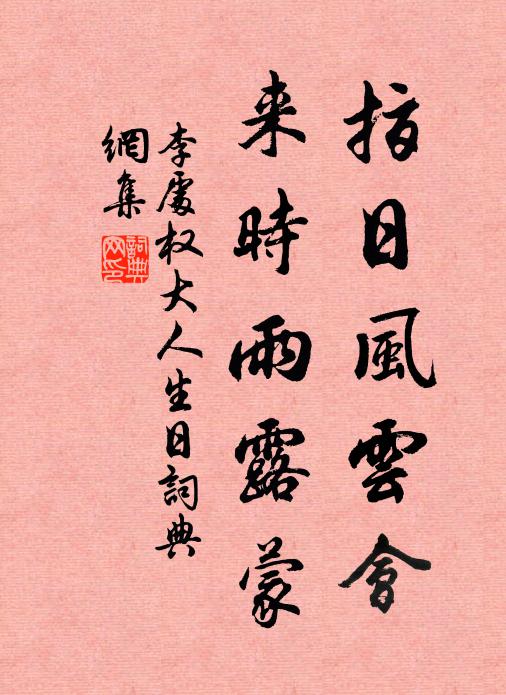 指日風雲會
来時雨露蒙
李處权大人生日詞典
網集
詞典
网印